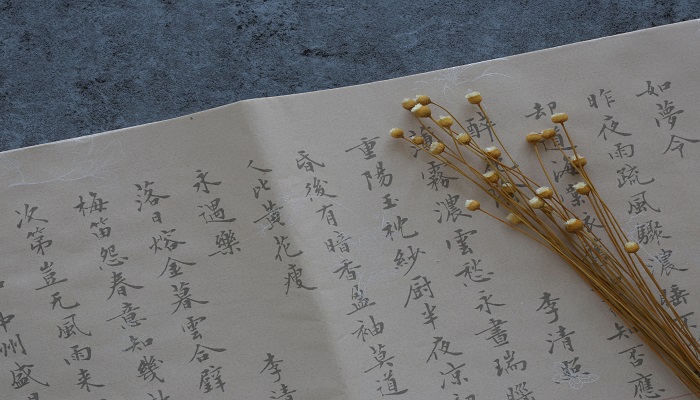 如夢令
昨夜雨疏風驟濃睡不
却道海棠知否應
醉李清照
薄霧濃雲愁永晝瑞腦
重陽玉枕紗厨半夜涼初
昏後有暗香盈袖莫道
人比黃花瘦
永遇樂 李清
落日熔金暮雲合璧
梅笛怨春意知幾
次第豈无風雨來
中州盛